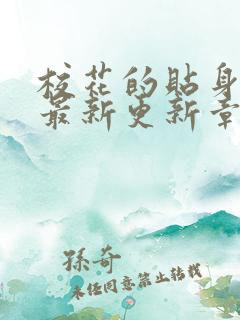 校花的贴身
最新更新章
孫奇
未经同意禁止转载